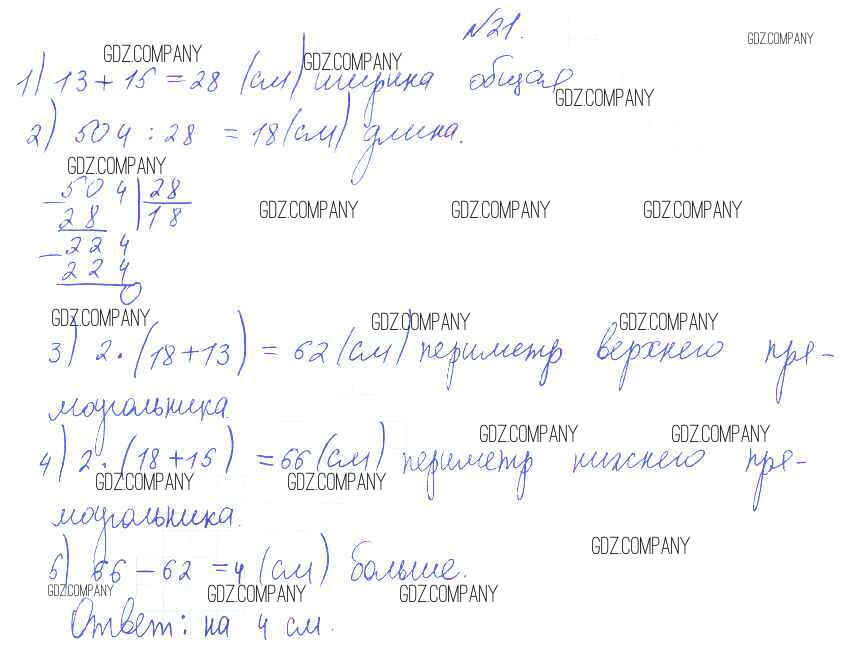 №21.
GDZ.COMPANY GDZ.COMPANY GDZ.COMPANY
1) 13 + 15 = 28 (см) ширина общая
GDZ.COMPANY
2) 504 : 28 = 18 (см) длина.
GDZ.COMPANY
504 28
28 18
GDZ.COMPANY GDZ.COMPANY GDZ.COMPANY
- 224
224
0
GDZ.COMPANY GDZ.COMPANY GDZ.COMPANY
3) 2 · (18 + 13) = 62 (см) периметр верхнего пря-
моугольника.
GDZ.COMPANY GDZ.COMPANY
4) 2 · (18 + 15) = 66 (см) периметр нижнего пря-
GDZ.COMPANY GDZ.COMPANY
моугольника.
GDZ.COMPANY
5) 66 - 62 = 4 (см) больше.
GDZ.COMPANY GDZ.COMPANY GDZ.COMPANY
Ответ: на 4 см.